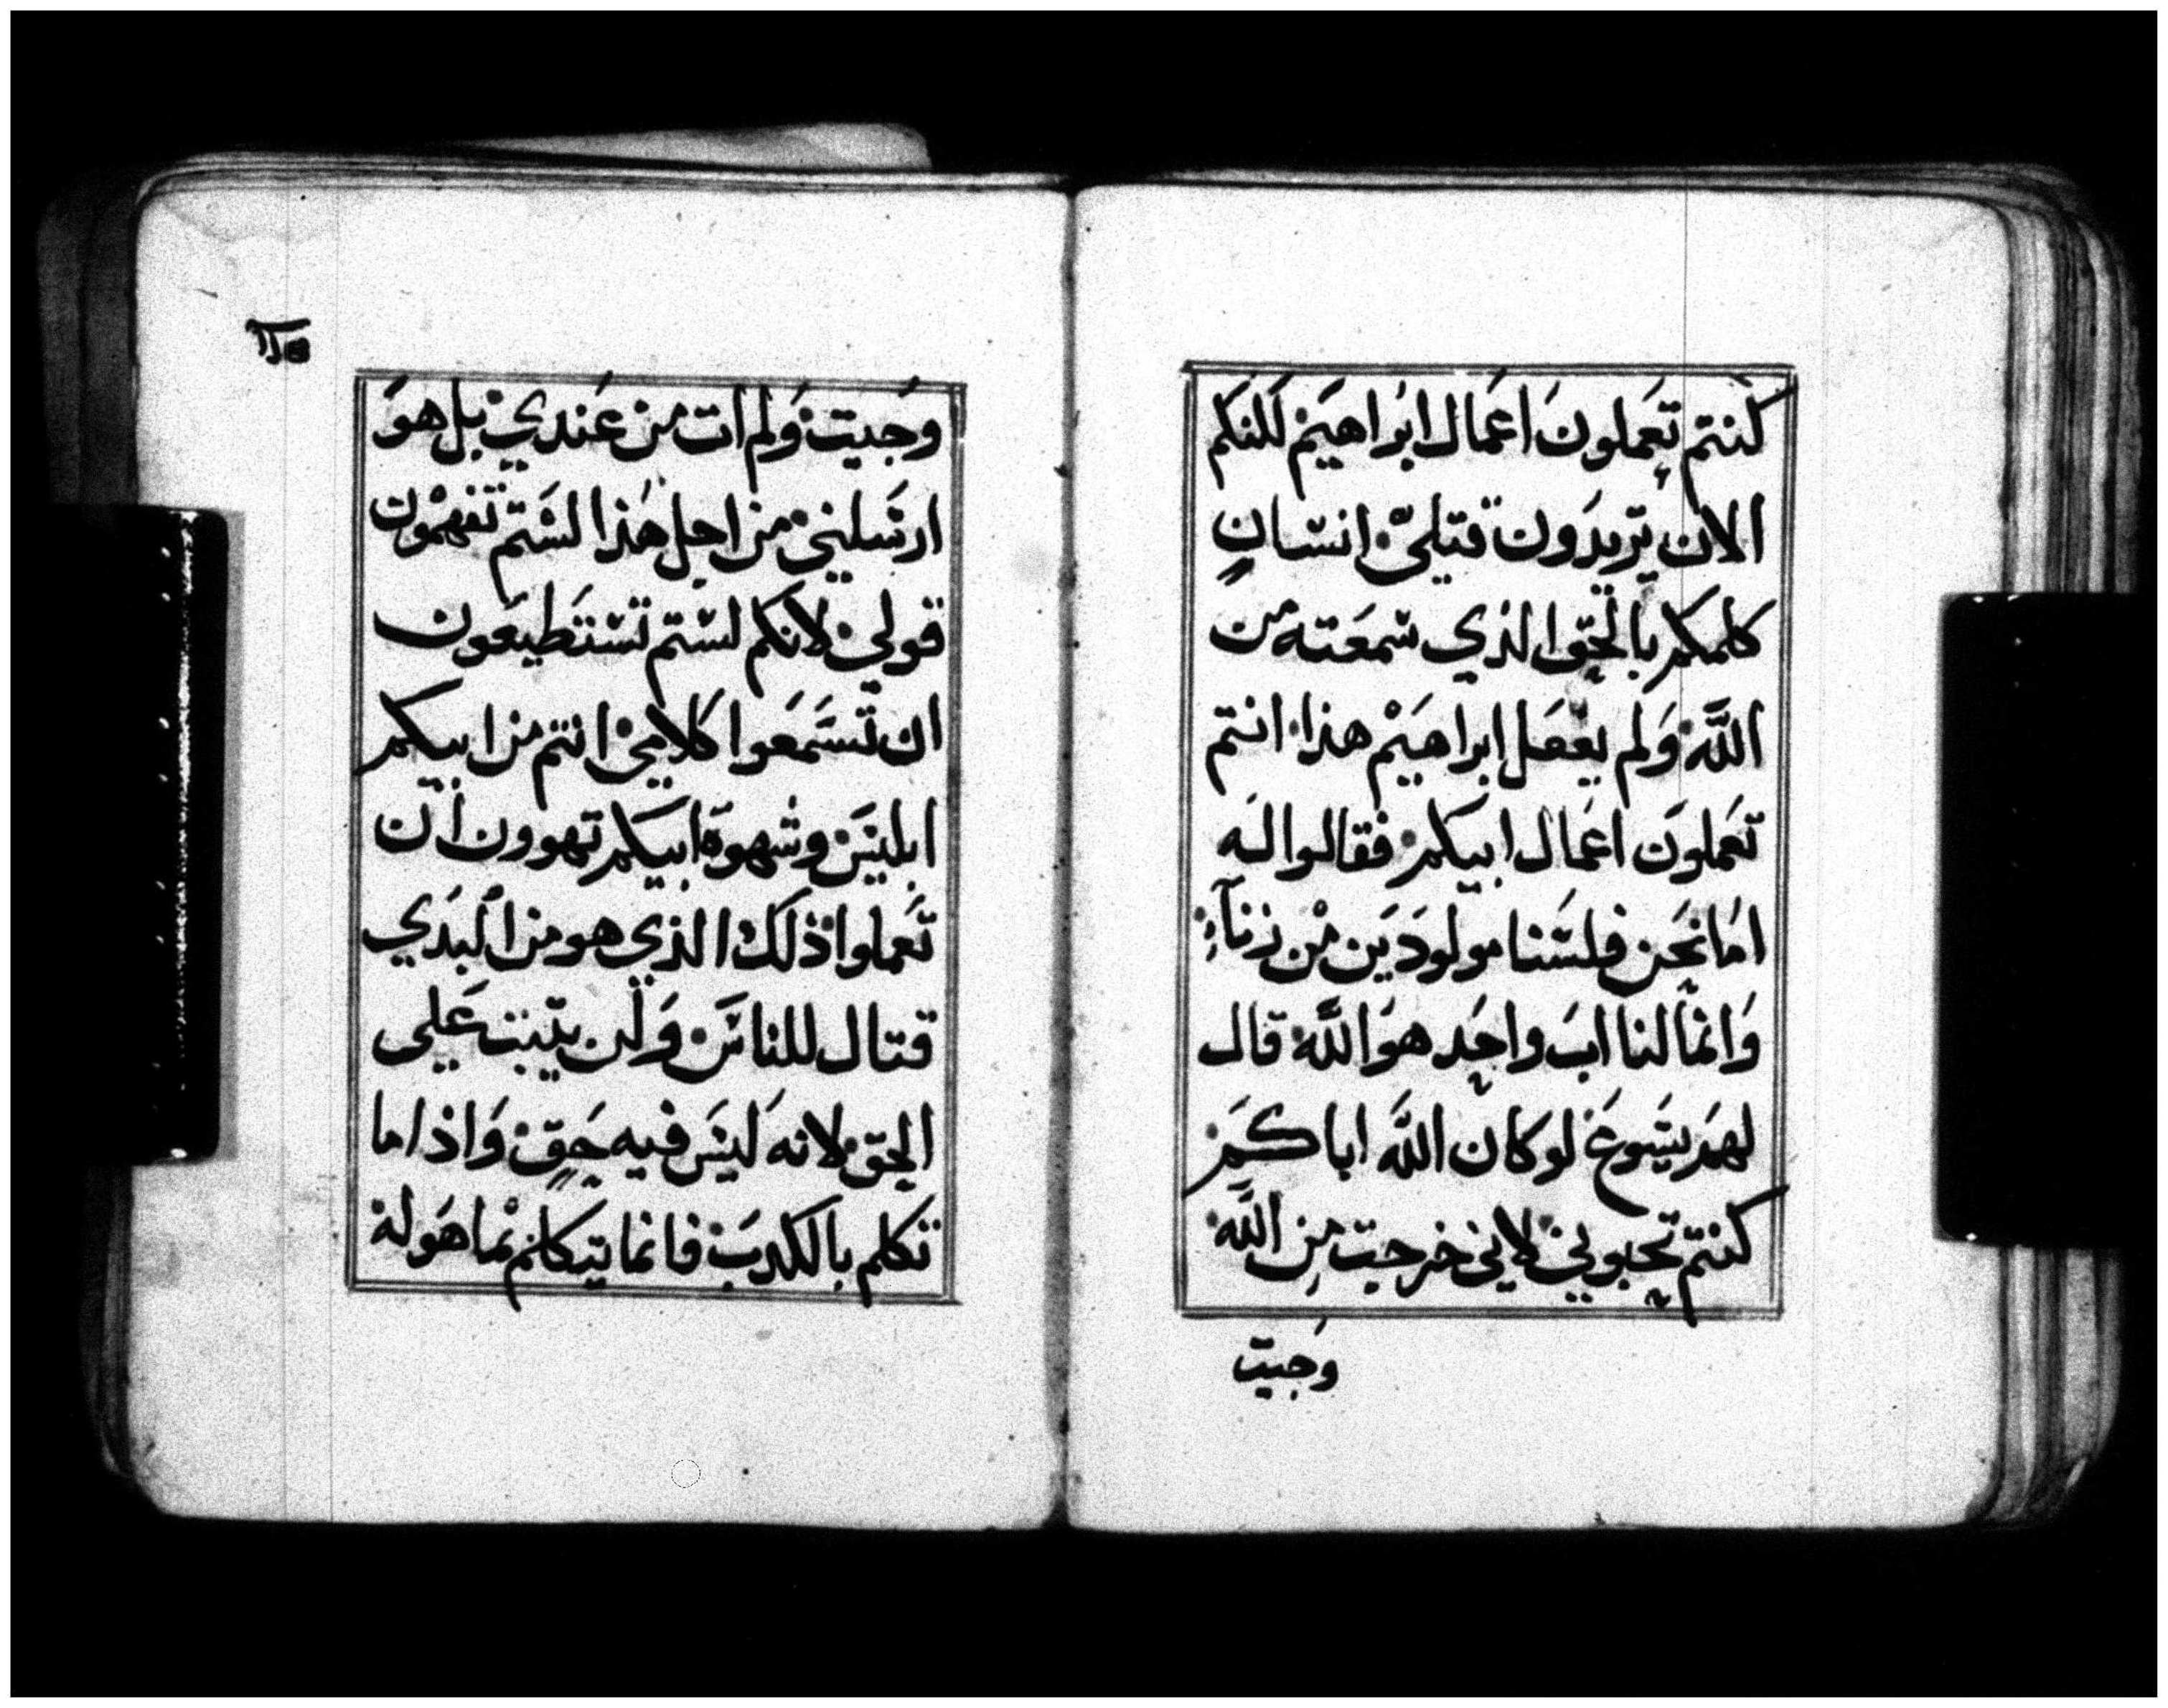 كنتم تعملون اعمال ابراهيم لكنكم
الان تريدون قتلي انسان
كلمكم بالحق الذي سمعته من
الله ولم يفعل ابراهيم هذا انتم
تعملون اعمال ابيكم فقالوا له
اما نحن فلسنا مولودين من زناء
وانما لنا اب واحد هو الله قال
لهم يسوع لو كان الله اباكم
كنتم تحبوني لاني خرجت من الله
وجيت
وجيت ولم ات من عندي بل هو
ارسلني من اجل هذا لستم تفهمون
قولي لانكم لستم تستطيعون
ان تسمعوا كلامي انتم من ابيكم
ابليس وشهوة ابيكم تهوون ان
تعملوا ذلك الذي هو من البدي
قتال للناس ولن يثبت علي
الحق لانه ليس فيه حق واذا ما
تكلم بالكدب فانما يتكلم بما هو له